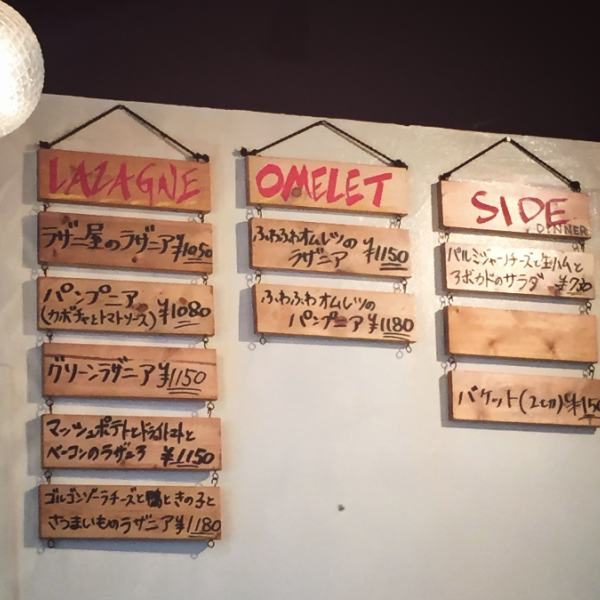 LAZAGNE
ラザニア屋のラザニア ¥1050
パンプニア
(カボチャとトマトソース) ¥1080
グリーンラザニア ¥1150
マッシュポテトとドライトマトと
ベーコンのラザニア ¥1150
ゴルゴンゾーラチーズと鴨ときの子と
さつまいものラザニア ¥1180
OMELET
ふわふわオムレツの
ラザニア ¥1150
ふわふわオムレツの
パンプニア ¥1180
SIDE
DINNER
パルミジャーノチーズと生ハムと
アボカドのサラダ
バケット(2切) ¥150